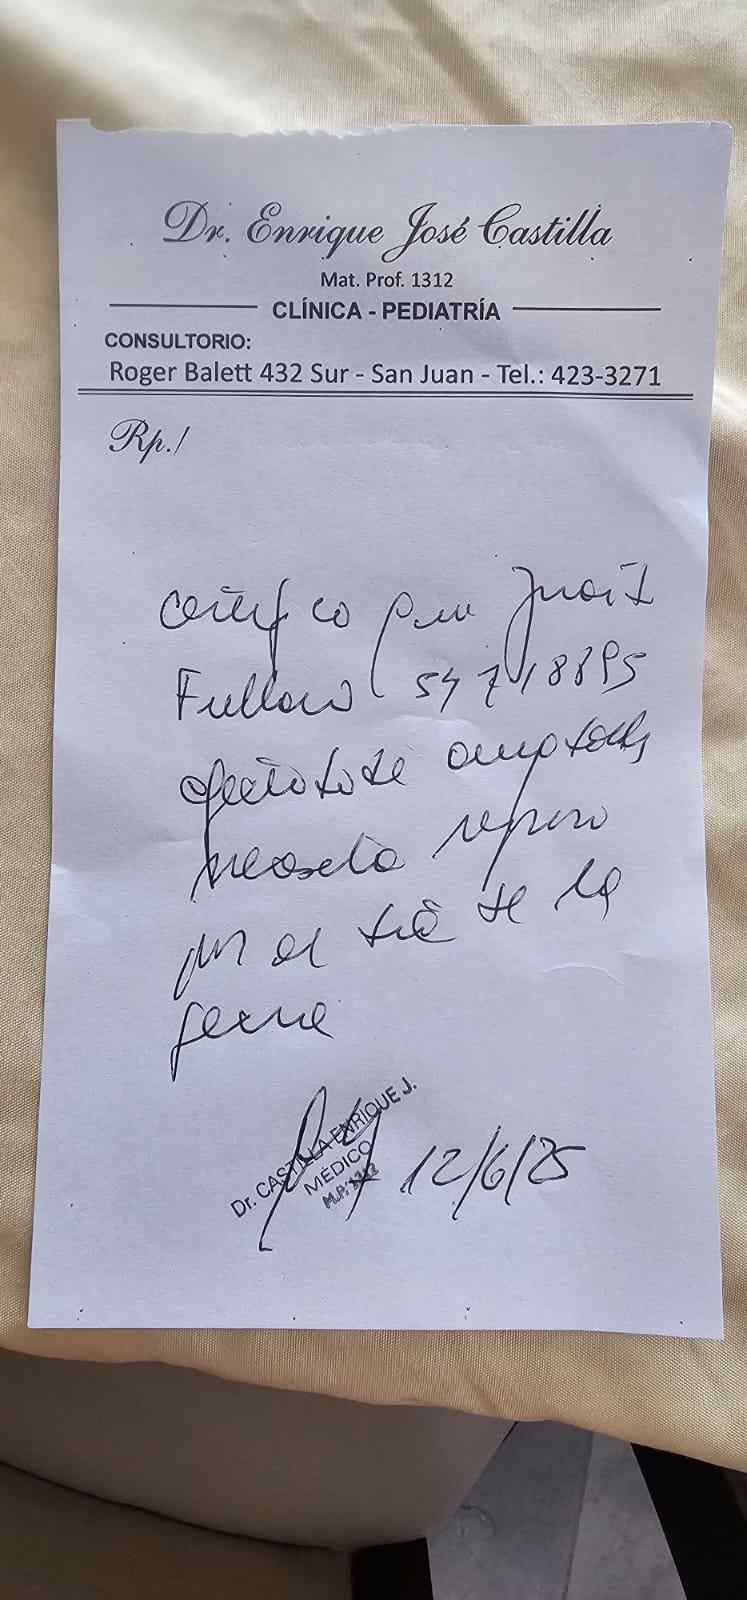 Dr. Enrique José Castilla
Mat. Prof. 1312
CLÍNICA - PEDIATRÍA
CONSULTORIO:
Roger Balett 432 Sur - San Juan - Tel.: 423-3271
Rp./
Certifico que
54 718895
necesita reposo
por el día de la
Dr. CASTILLA ENRIQUE J.
MÉDICO
M.P. 1312
12/6/25